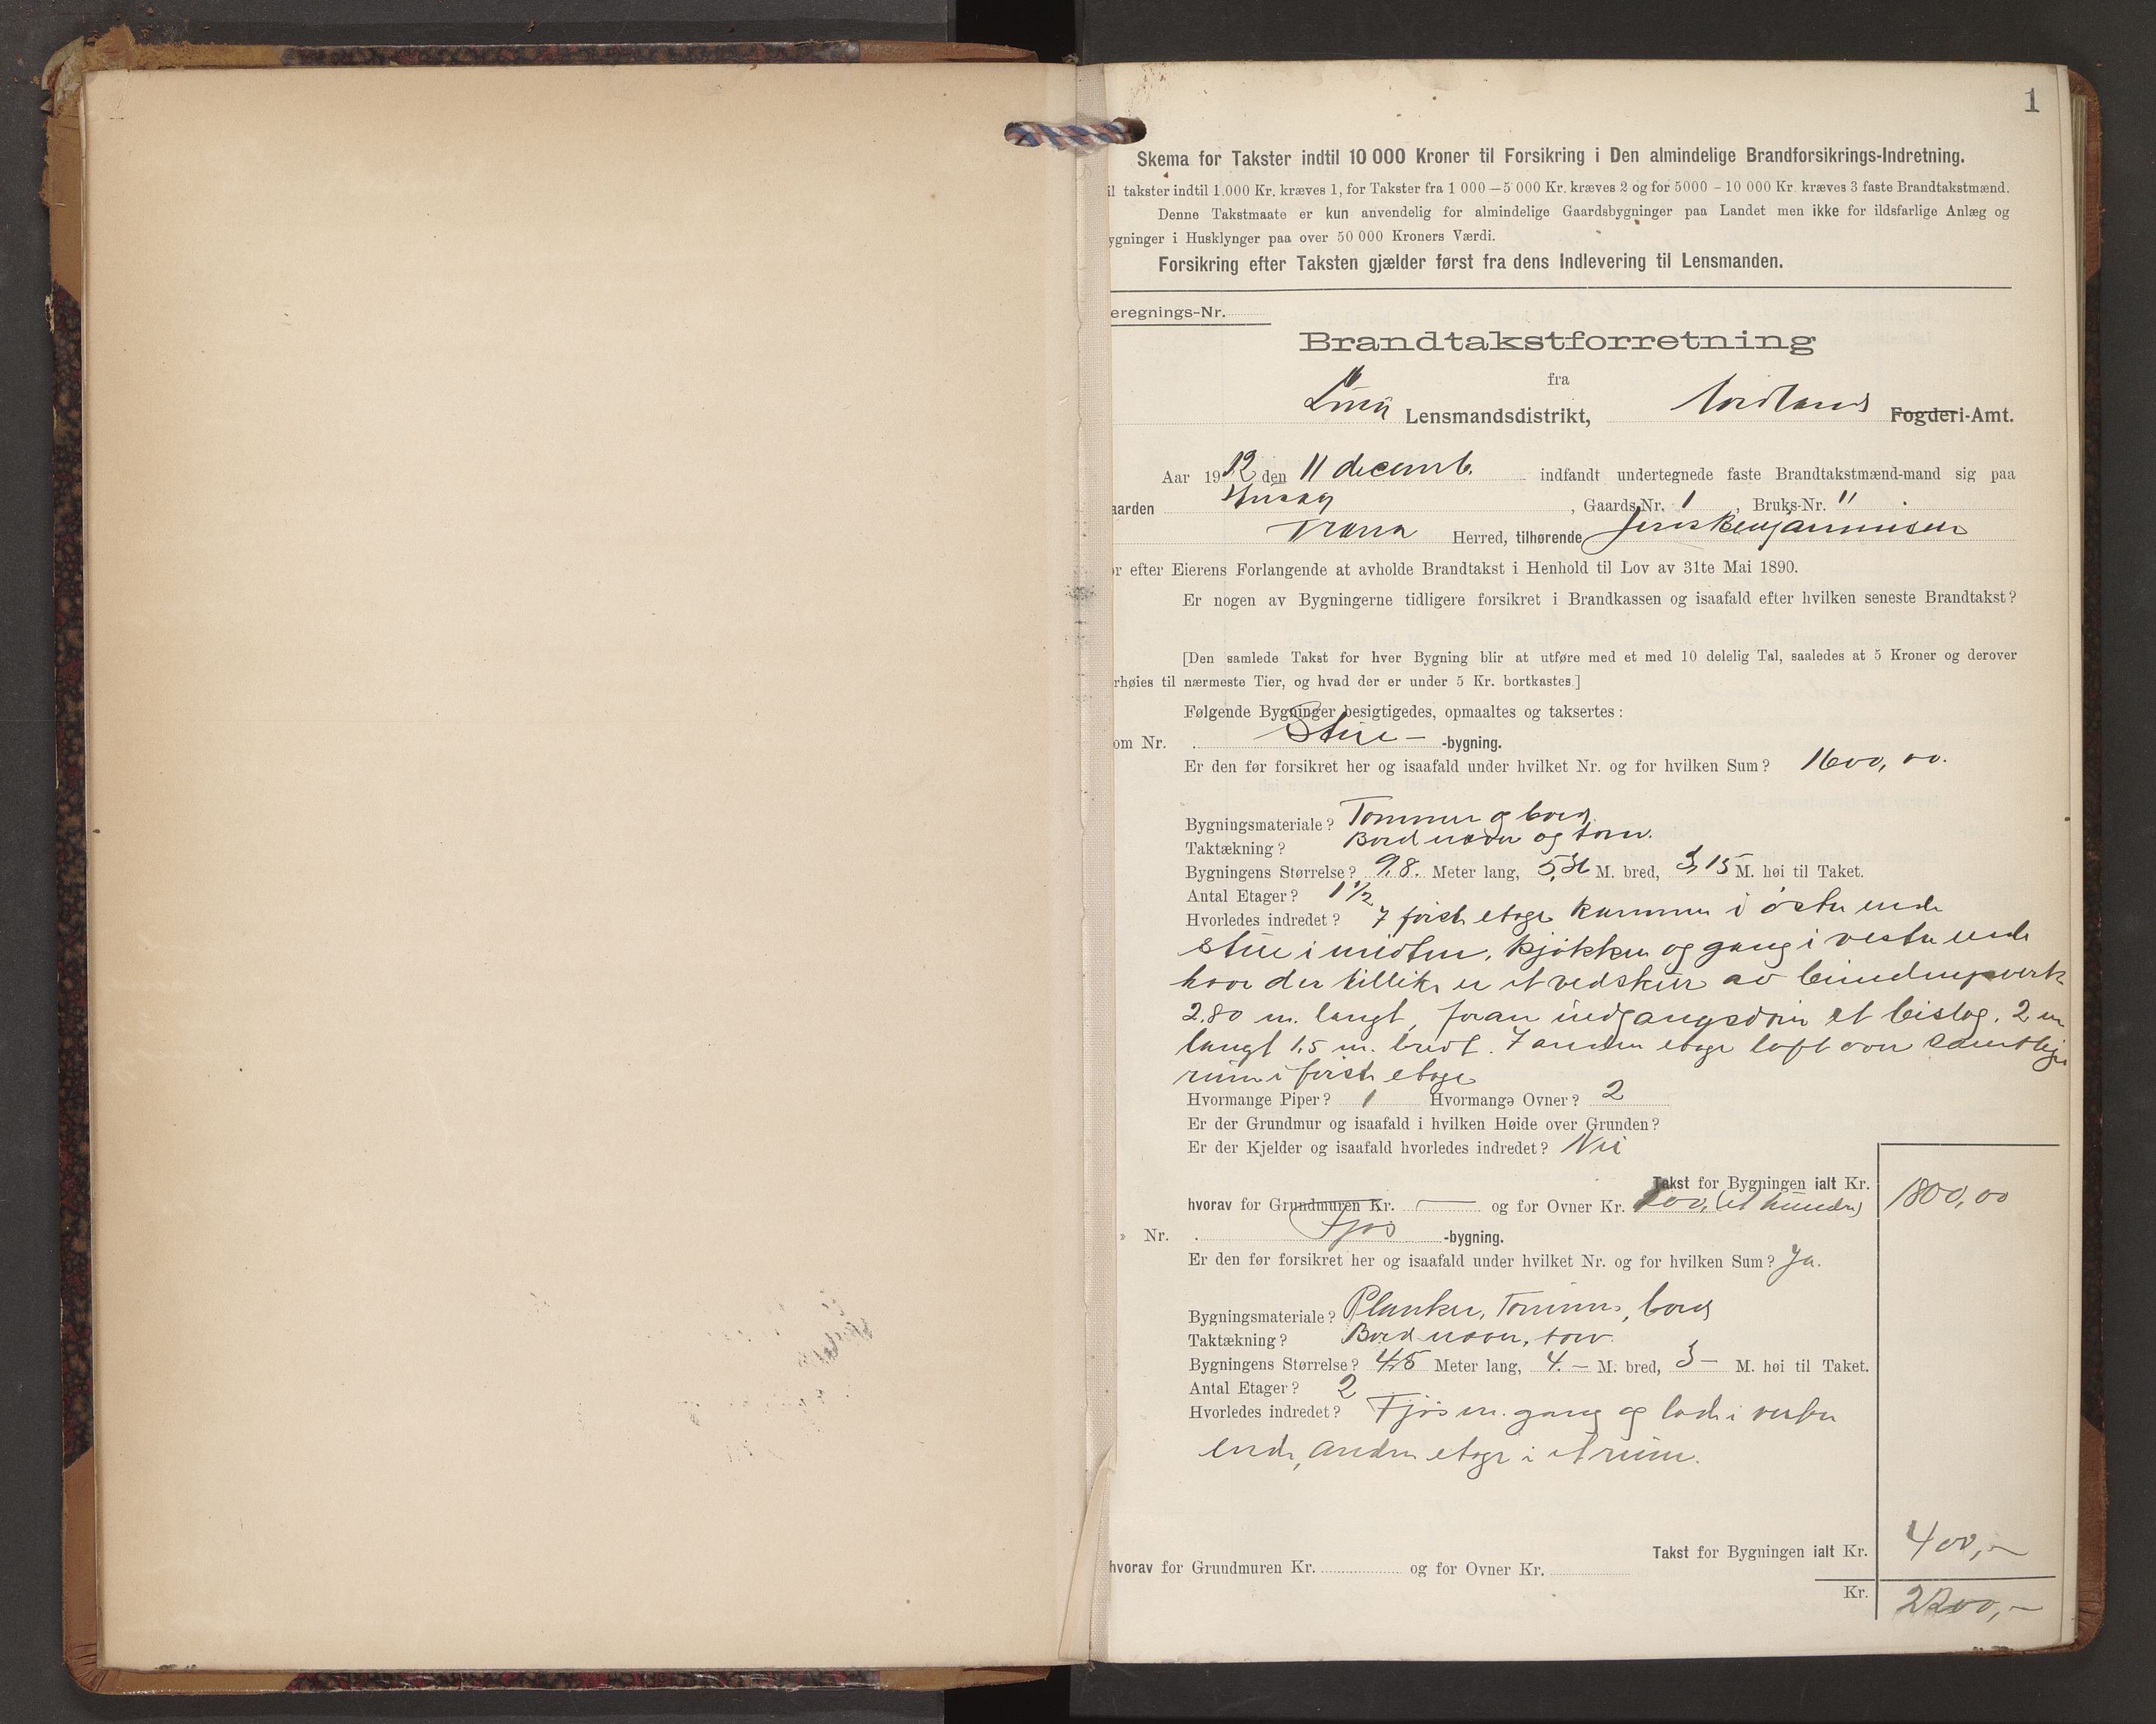 1
Skema for Takster indtil 10 000 Kroner til Forsikring i Den almindelige Brandforsikrings-Indretning.
il takster indtil 1.000 Kr. kræves 1, for Takster fra 1 000 — 5 000 Kr. kræves 2 og for 5000 - 10 000 Kr. kræves 3 faste Brandtakstmænd.
Denne Takstmaate er kun anvendelig for almindelige Gaardsbygninger paa Landet men ikke for ildsfarlige Anlæg og
ygninger i Husklynger paa over 50 000 Kroners Værdi.
Forsikring efter Taksten gjælder først fra dens Indlevering til Lensmanden.
eregnings-Nr.
Brandtakstforretning
fra
Lensmandsdistrikt, Nordlands Fogderi-Amt.
Aar 1912 den 11 decemb. indfandt undertegnede faste Brandtakstmænd-mand sig paa
aarden Husøy, Gaards Nr. 1, Bruks-Nr. "
Træna Herred, tilhørende Jens Benjaminsen
or efter Eierens Forlangende at avholde Brandtakst i Henhold til Lov av 31te Mai 1890.
Er nogen av Bygningerne tidligere forsikret i Brandkassen og isaafald efter hvilken seneste Brandtakst?
[Den samlede Takst for hver Bygning blir at utføre med et med 10 delelig Tal, saaledes at 5 Kroner og derover
rhøies til nærmeste Tier, og hvad der er under 5 Kr. bortkastes.]
Følgende Bygninger besigtigedes, opmaaltes og taksertes:
om Nr. Stue- -bygning.
Er den før forsikret her og isaafald under hvilket Nr. og for hvilken Sum? 1600,00.
Bygningsmateriale? Tømmer og bord
Taktækning? Bord næver og torv.
Bygningens Størrelse? 9,8. Meter lang, M. bred, 3,15 M. høi til Taket.
Antal Etager? 1 1/2
Hvorledes indredet? I første etage kammer i østre ende
stue i midten, kjøkken og gang i vestre ende
hvor der tillike er et vedskur av bindingsverk
2.80 m. langt, foran indgangsdøren et bislag, 2 m
langt 1,5 m. bredt. I anden etage loft over samtlige
rum i første etage
Hvormange Piper? 1 Hvormange Ovner? 2
Er der Grundmur og isaafald i hvilken Høide over Grunden?
Er der Kjelder og isaafald hvorledes indredet? Nei
Takst for Bygningen ialt Kr.
hvorav for Grundmuren Kr. — og for Ovner Kr. 100, (et hundre) 1800,00
» Nr. Fjøs -bygning.
Er den før forsikret her og isaafald under hvilket Nr. og for hvilken Sum? Ja.
Bygningsmateriale? Planker, Tømmer, bord
Taktækning? Bord næver, torv.
Bygningens Størrelse? 4,5 Meter lang, 4.- M. bred, 3- M. høi til Taket.
Antal Etager? 2
Hvorledes indredet? Fjøs m. gang og lade i vestre
ende, anden etage i et rum.
Takst for Bygningen ialt Kr. 400,-
hvorav for Grundmuren Kr. og for Ovner Kr.
Kr. 2200,-